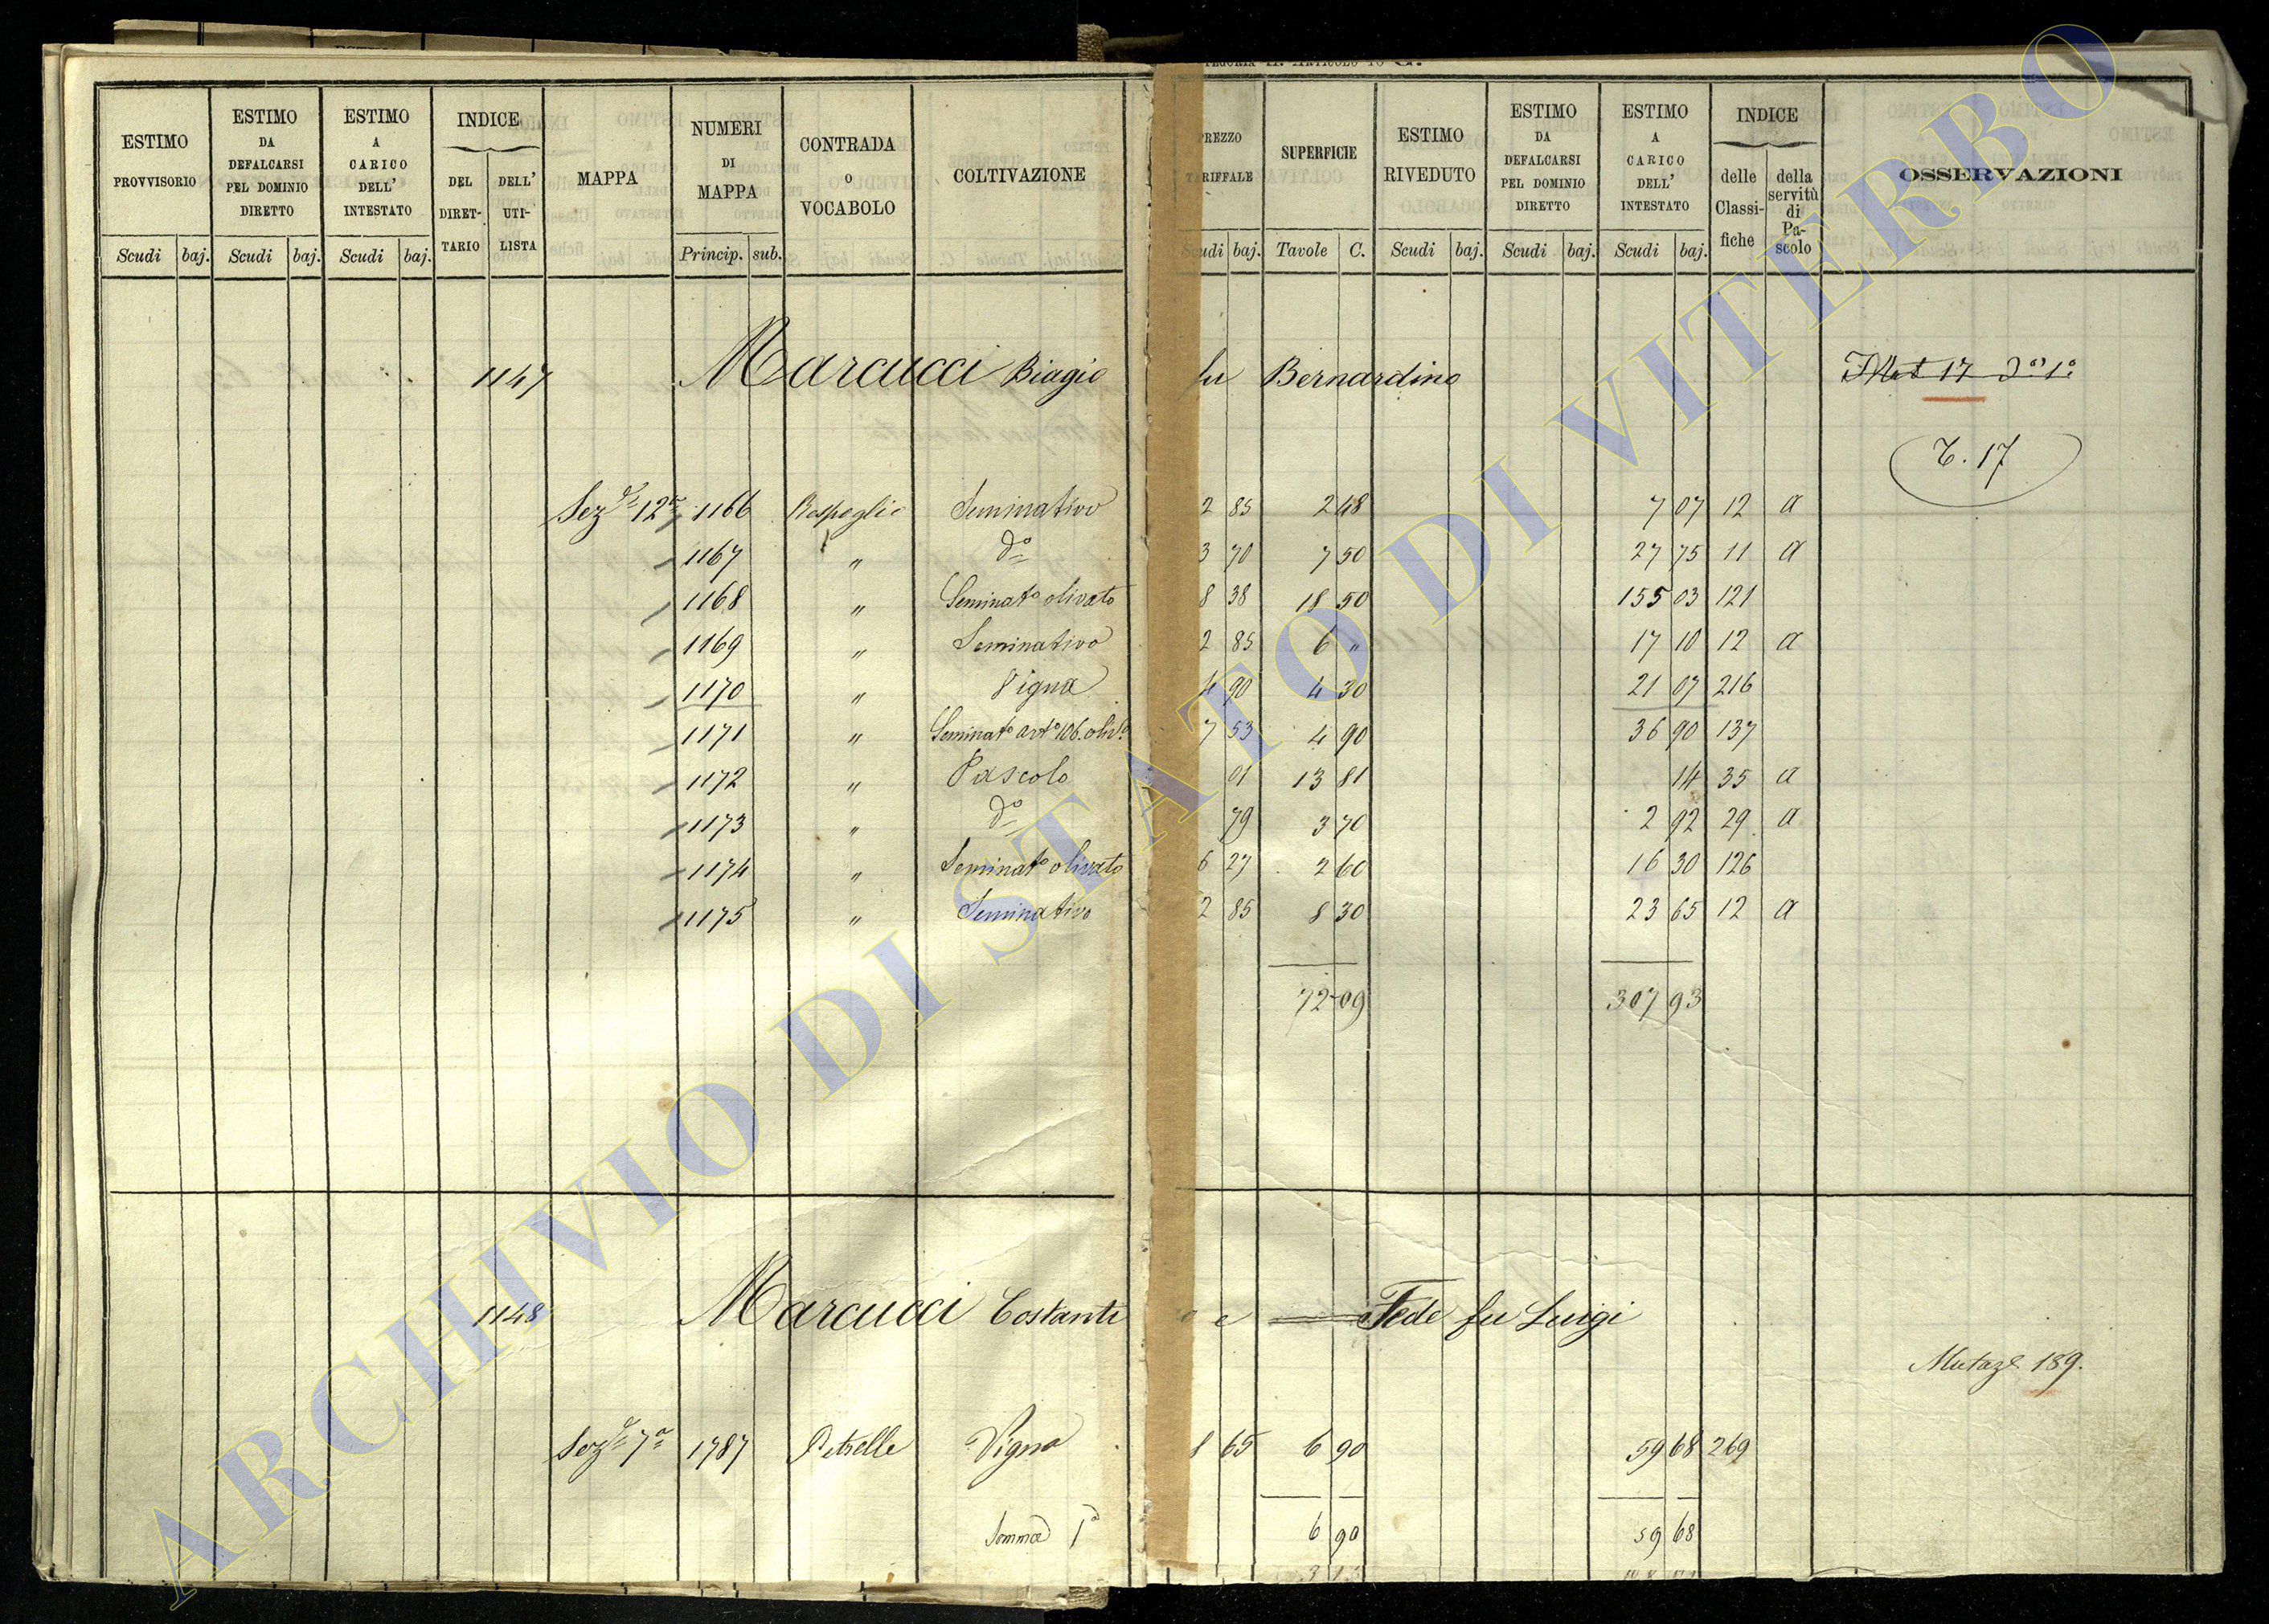 ESTIMO PROVVISORIO Scudi baj. | ESTIMO DA DEFALCARSI PEL DOMINIO DIRETTO Scudi baj. | ESTIMO A CARICO DELL' INTESTATO Scudi baj. | INDICE DEL DIRET-TARIO DELL' UTI-LISTA | MAPPA | NUMERI DI MAPPA Princip. sub. | CONTRADA O VOCABOLO | COLTIVAZIONE | PREZZO TARIFFALE Scudi baj. | SUPERFICIE Tavole C. | ESTIMO RIVEDUTO Scudi baj. | ESTIMO DA DEFALCARSI PEL DOMINIO DIRETTO Scudi baj. | ESTIMO A CARICO DELL' INTESTATO Scudi baj. | INDICE delle Classi-fiche della servitù di Pa-scolo | OSSERVAZIONI
1147 Marcucci Biagio fu Bernardino
T. 17
Sez.e 12a 1166 Seminativo 2 85 2 48 7 07 12 a
1167 " do 3 70 7 50 27 75 11 a
1168 " Seminato olivato 8 38 18 50 155 03 121
1169 " Seminativo 2 85 6 " 17 10 12 a
1170 " Vigna 4 90 4 30 21 07 216
1171 " Seminato 7 53 4 90 36 90 137
1172 " Pascolo 01 13 81 14 35 a
1173 " do 79 3 70 2 92 29 a
1174 " Seminato olivato 6 27 2 60 16 30 126
1175 " Seminativo 2 85 8 30 23 65 12 a
72 09 307 93
1148 Marcucci Costante e Fede fu Luigi
Mutaze 189.
Sez.e 7a 1787 Petrelle Vigna 8 65 6 90 59 68 269
Somma 6 90 59 68
ARCHIVIO DI STATO DI VITERBO